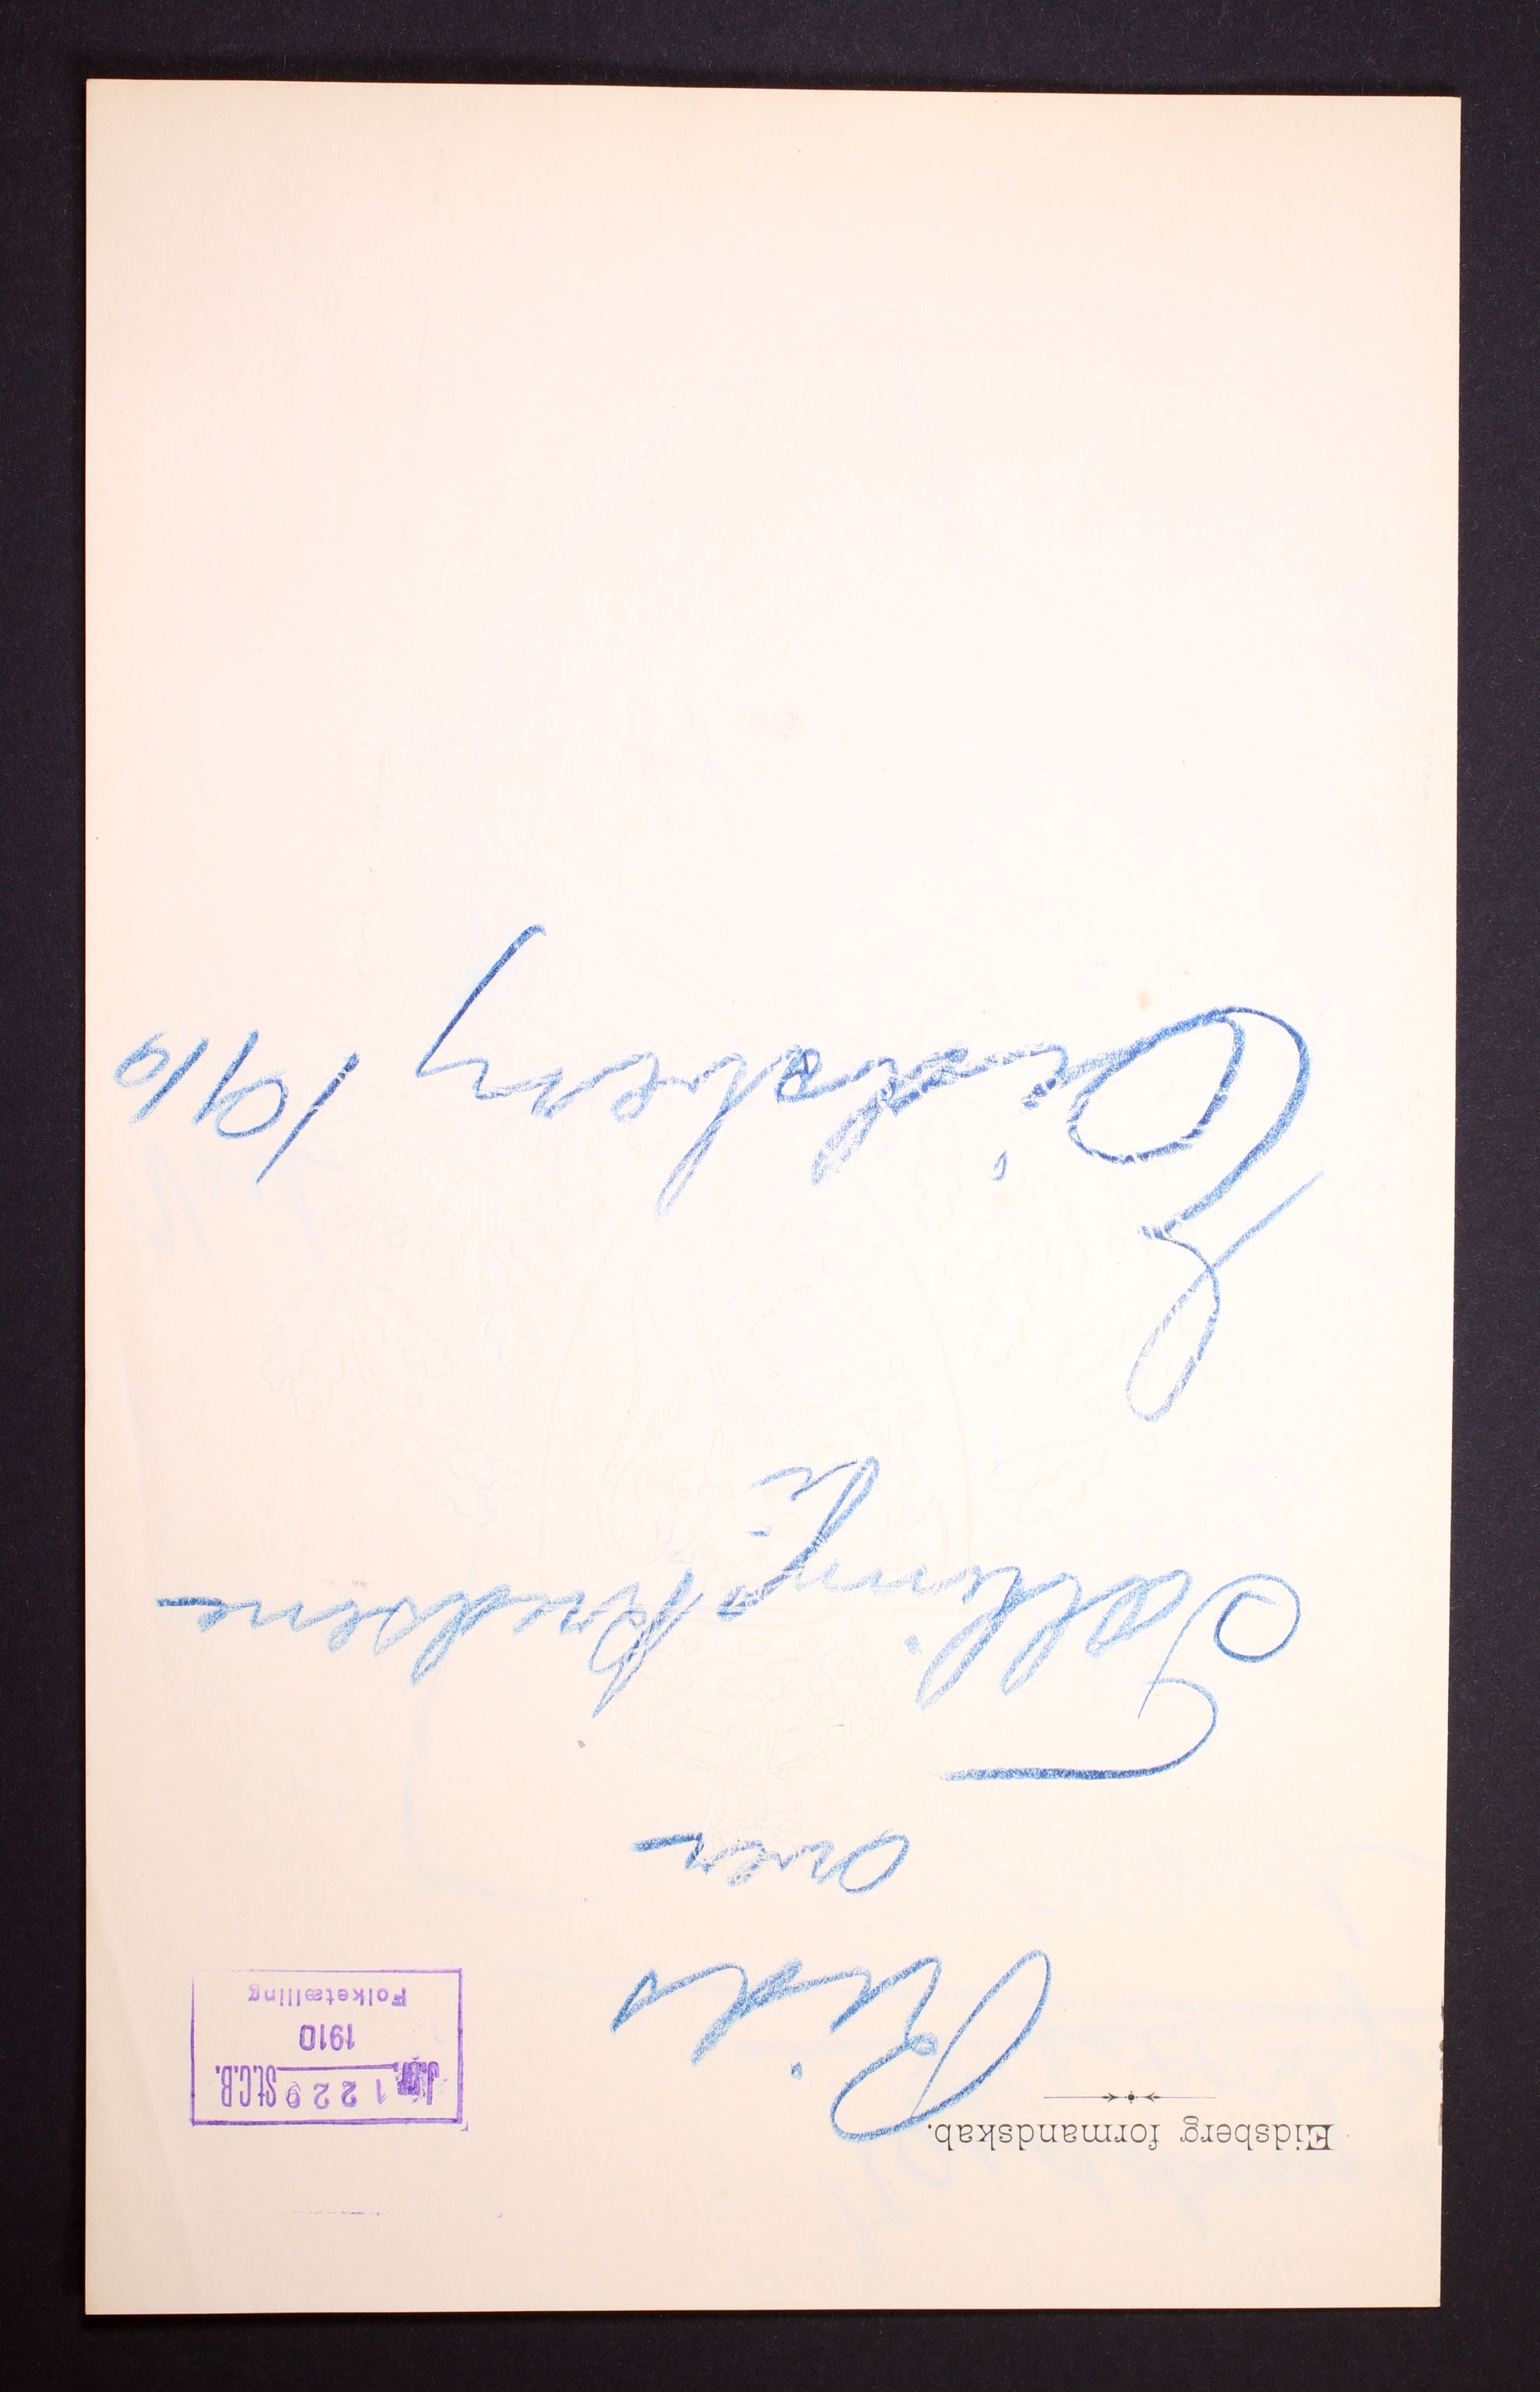 Eidsberg formandskab.
J.nr. 1229 St.C.B.
1910
Folketælling
Rids
over
Tællingskredsene
i
Eidsberg
1910